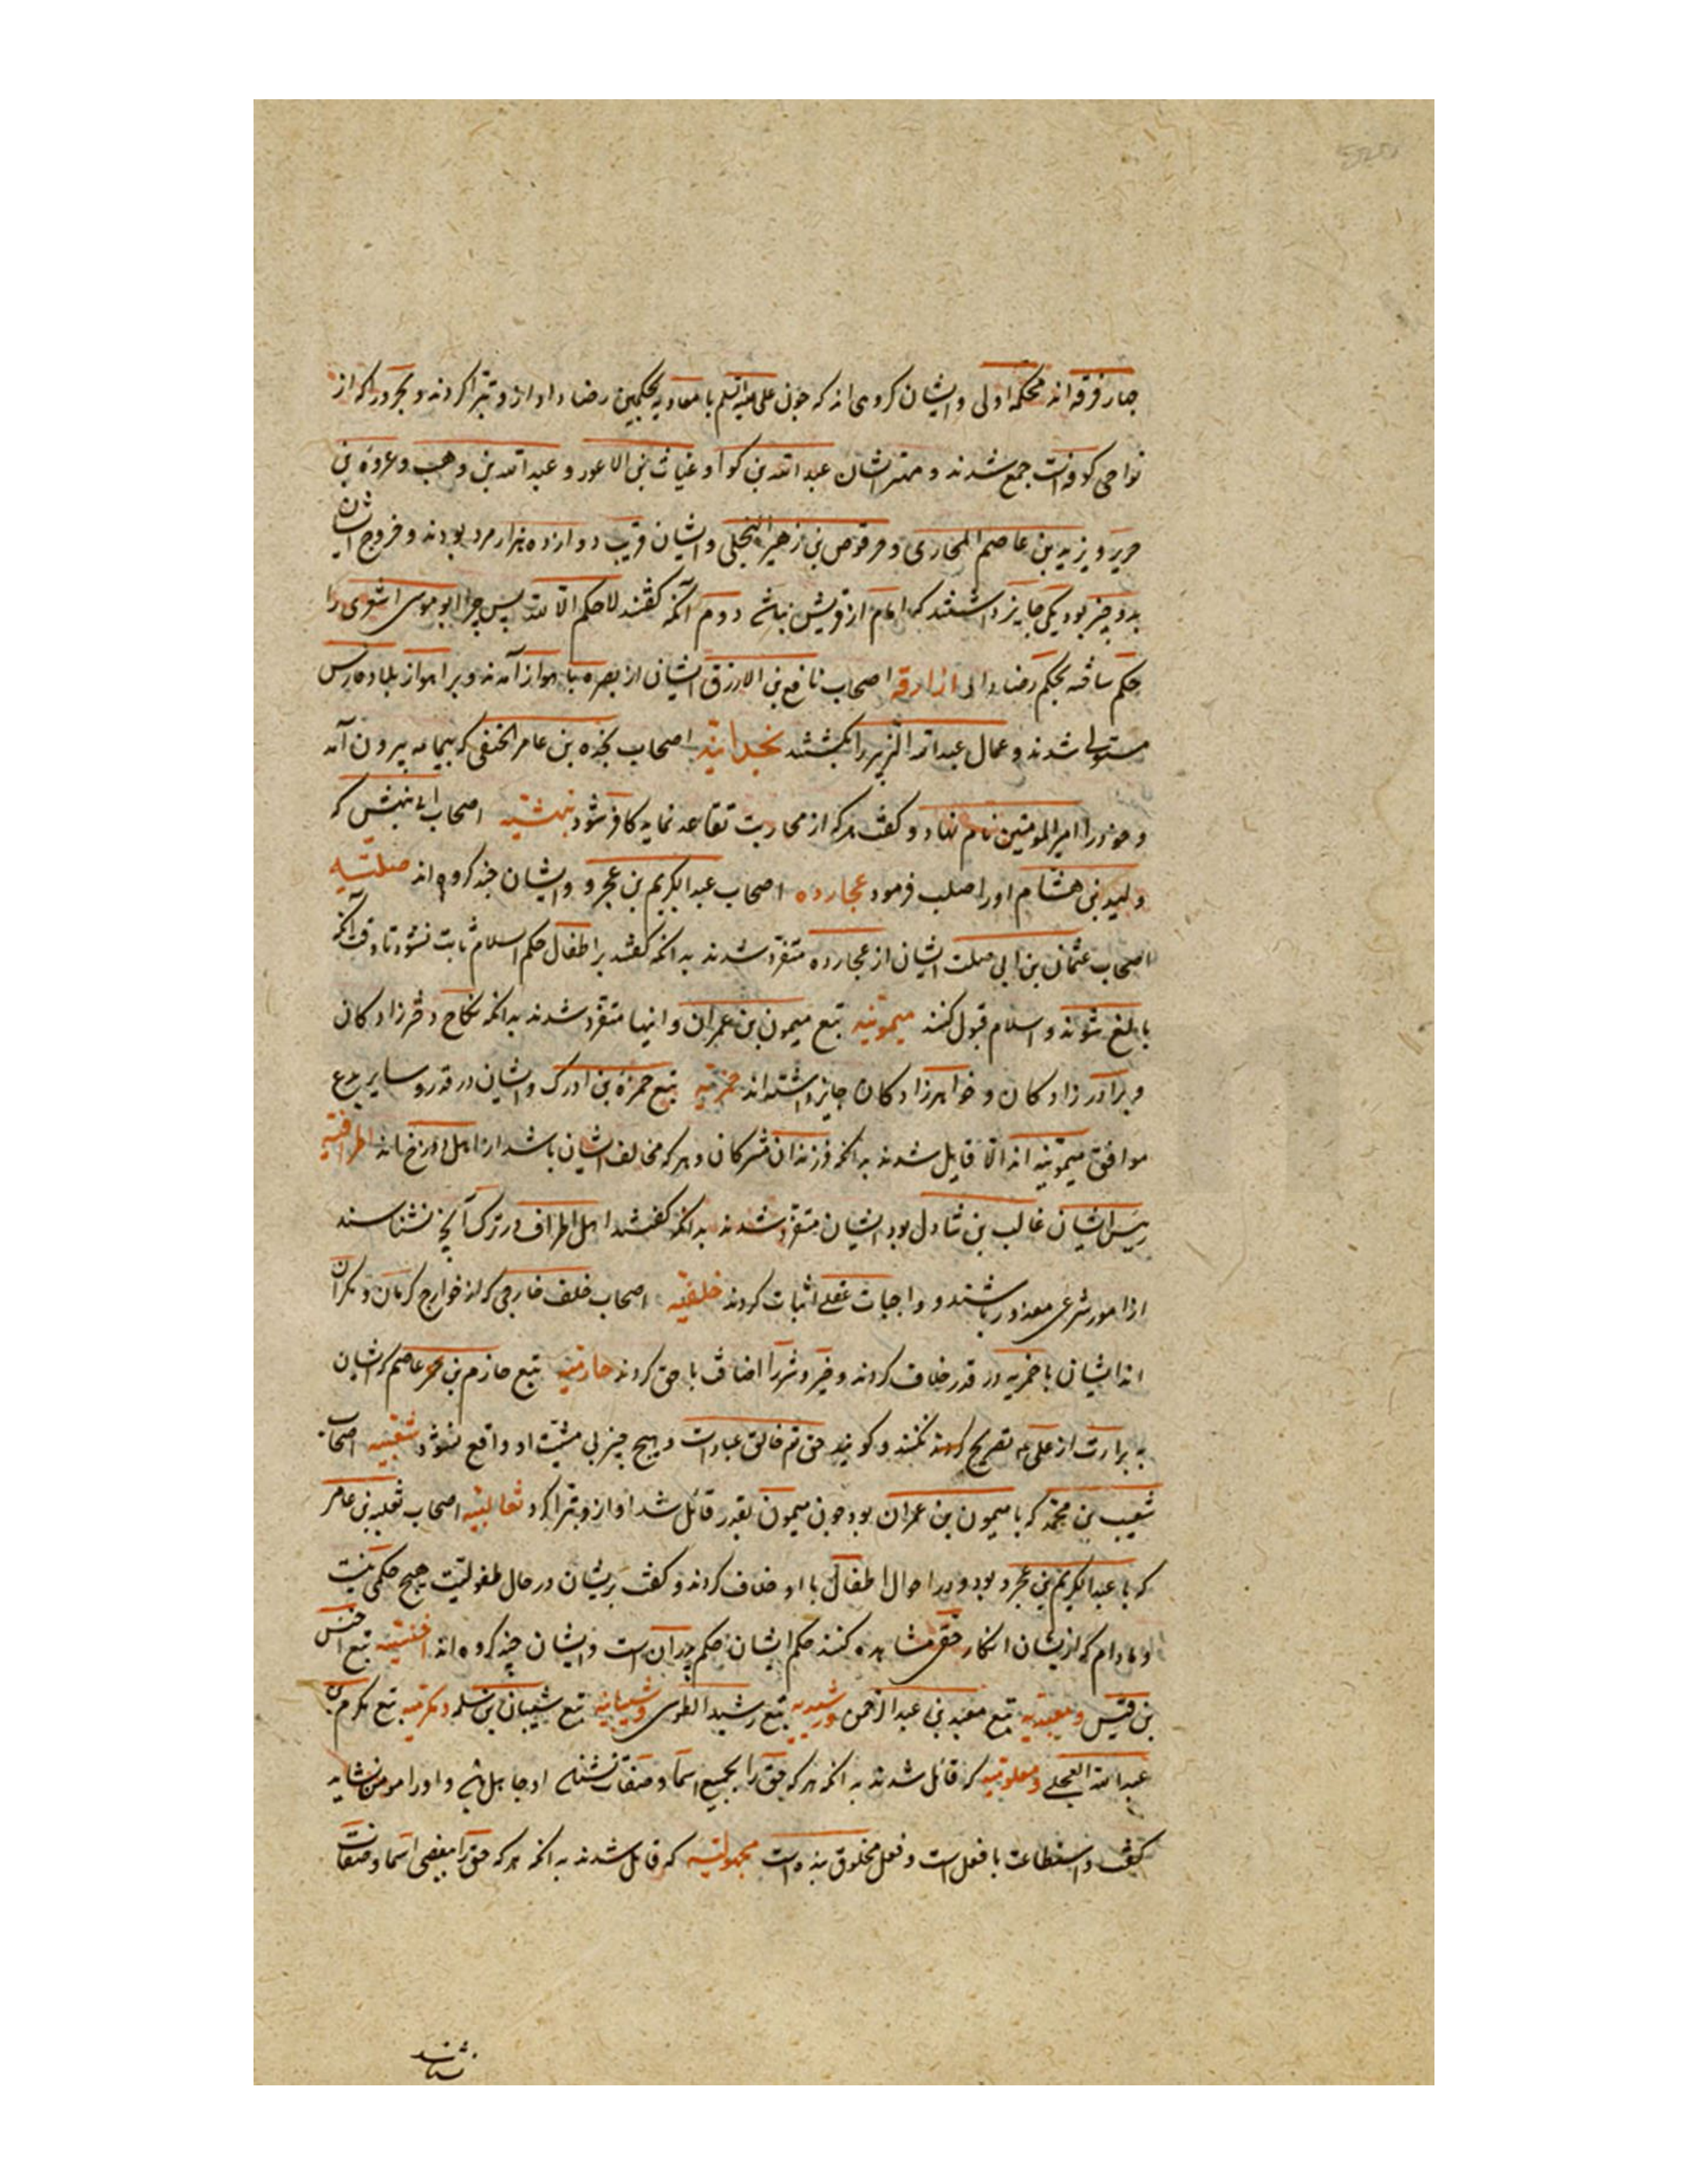 چهار فرقه اند محکمه اولی و ایشان کروهی اند که چون علی علیه السلم با معاویه بحکمین رضا داد از و تبرا کردند و بحرورا که از
نواحی کوفه است جمع شدند و مهتر ایشان عبد الله بن کوا و غیاث بن الاعور و عبد الله بن وهب و عروة بن
جریر و یزید بن عاصم المحاربی و حرقوص بن زهیر البجلی و ایشان قریب دوازده هزار مرد بودند و خروج ایشان
بدو چیز بود یکی جایز داشتند که امام از قریش نباشد دوم آنکه کفتند لا حکم الا لله پس چرا ابو موسی اشعری را
حکم ساخته بحکم رضا داد ازارقه اصحاب نافع بن الازرق ایشان از بصره با هواز آمدند و بر اهواز و بلاد فارس
مستولی شدند و عمال عبد الله الزبیر را بکشتند نجداتیه اصحاب نجده بن عامر الحنفی که بیمامه بیرون آمد
و خود را امیر المومنین نام نهاد و کفت هرکه از محاربت تقاعد نماید کافر شود بیهشیه اصحاب ابی بیهش که
ولید بن هشام او را صلب فرمود عجارده اصحاب عبد الکریم بن عجرد و ایشان چند کروه اند صلتیه
اصحاب عثمان بن ابی صلت ایشان از عجارده متفرد شدند بدانکه کفتند بر اطفال حکم اسلام ثابت نشود تا وقت آنکه
بالغ شوند و اسلام قبول کنند میمونیه تبع میمون بن عمران و اینها متفرد شدند بدانکه نکاح دخترزادکان
و برادرزادکان و خواهرزادکان جایز داشته اند حمزیه تبع حمزة بن ادرک و ایشان در قدر و سایر بدع
موافق میمونیه اند الا قایل شدند بدانکه فرزندان مشرکان و هرکه مخالف ایشان باشد از اهل دوزخ اند اطرافیه
رییس ایشان غالب بن شادل بود ایشان متفرد شدند بدانکه کفتند اهل اطراف در ترک آنچه نشناسند
از امور شرعی معذور باشند و واجبات عقلی اثبات کردند خلفیه اصحاب خلف خارجی که از خوارج کرمان و مکران
اند ایشان با حمزیه در قدر خلاف کردند و خیر و شر را اضافت با حق کردند حازمیه تبع حازم بن عاصم که ایشان
به براءت از علی تصریح نکنند و کویند حق تع خالق عباد است و هیچ چیز بی مشیت او واقع نشود شعیبیه اصحاب
شعیب بن محمد که با میمون بن عمران بود چون میمون بقدر قائل شد او از و تبرا کرد ثعالبیه اصحاب ثعلبه بن عامر
که با عبد الکریم بن عجرد بود و در احوال اطفال با او خلاف کردند و کفت بریشان در حال طفولیت هیچ حکمی نیست
و مادام که ازیشان انکار حق مشاهده کنند حکم ایشان حکم پدران است و ایشان چند کروه اند اخنسیه تبع اخنس
بن قیس و معبدیه تبع معبد بن عبد الرحمن و رشیدیه تبع رشید الطوسی و شیبانیه تبع شیبان بن سلمه و مکرمیه تبع مکرم بن
عبد الله العجلی و معلومیه که قائل شدند بدانکه هرکه حق را بجمیع اسما و صفات نشناسد او جاهل باشد و او را مومن نشاید
کفت و استطاعت با فعل است و فعل مخلوق بنده است مجهولیه که قائل شدند بدانکه هرکه حق را ببعضی اسما و صفات
بشناسد